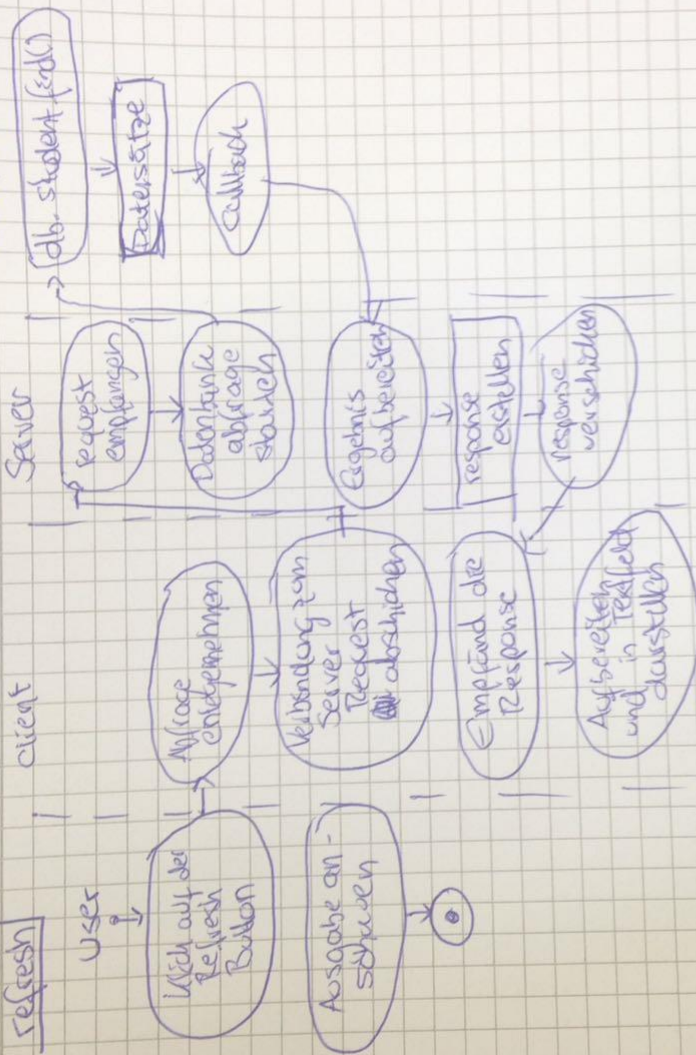 refresh
User
Client
Server
Klick auf den
Refresh
Button
Ausgabe an-
schauen
Abfrage
entgegennehmen
Verbindung zum
Server
Request
abschicken
Empfänd die
Response
Aufbereiten
und in Textfeld
darstellen
request
empfangen
Datenbank
abfrage
starten
Ergebnis
aufbereiten
response
erstellen
response
verschicken
db.student.find()
Datensätze
Callback